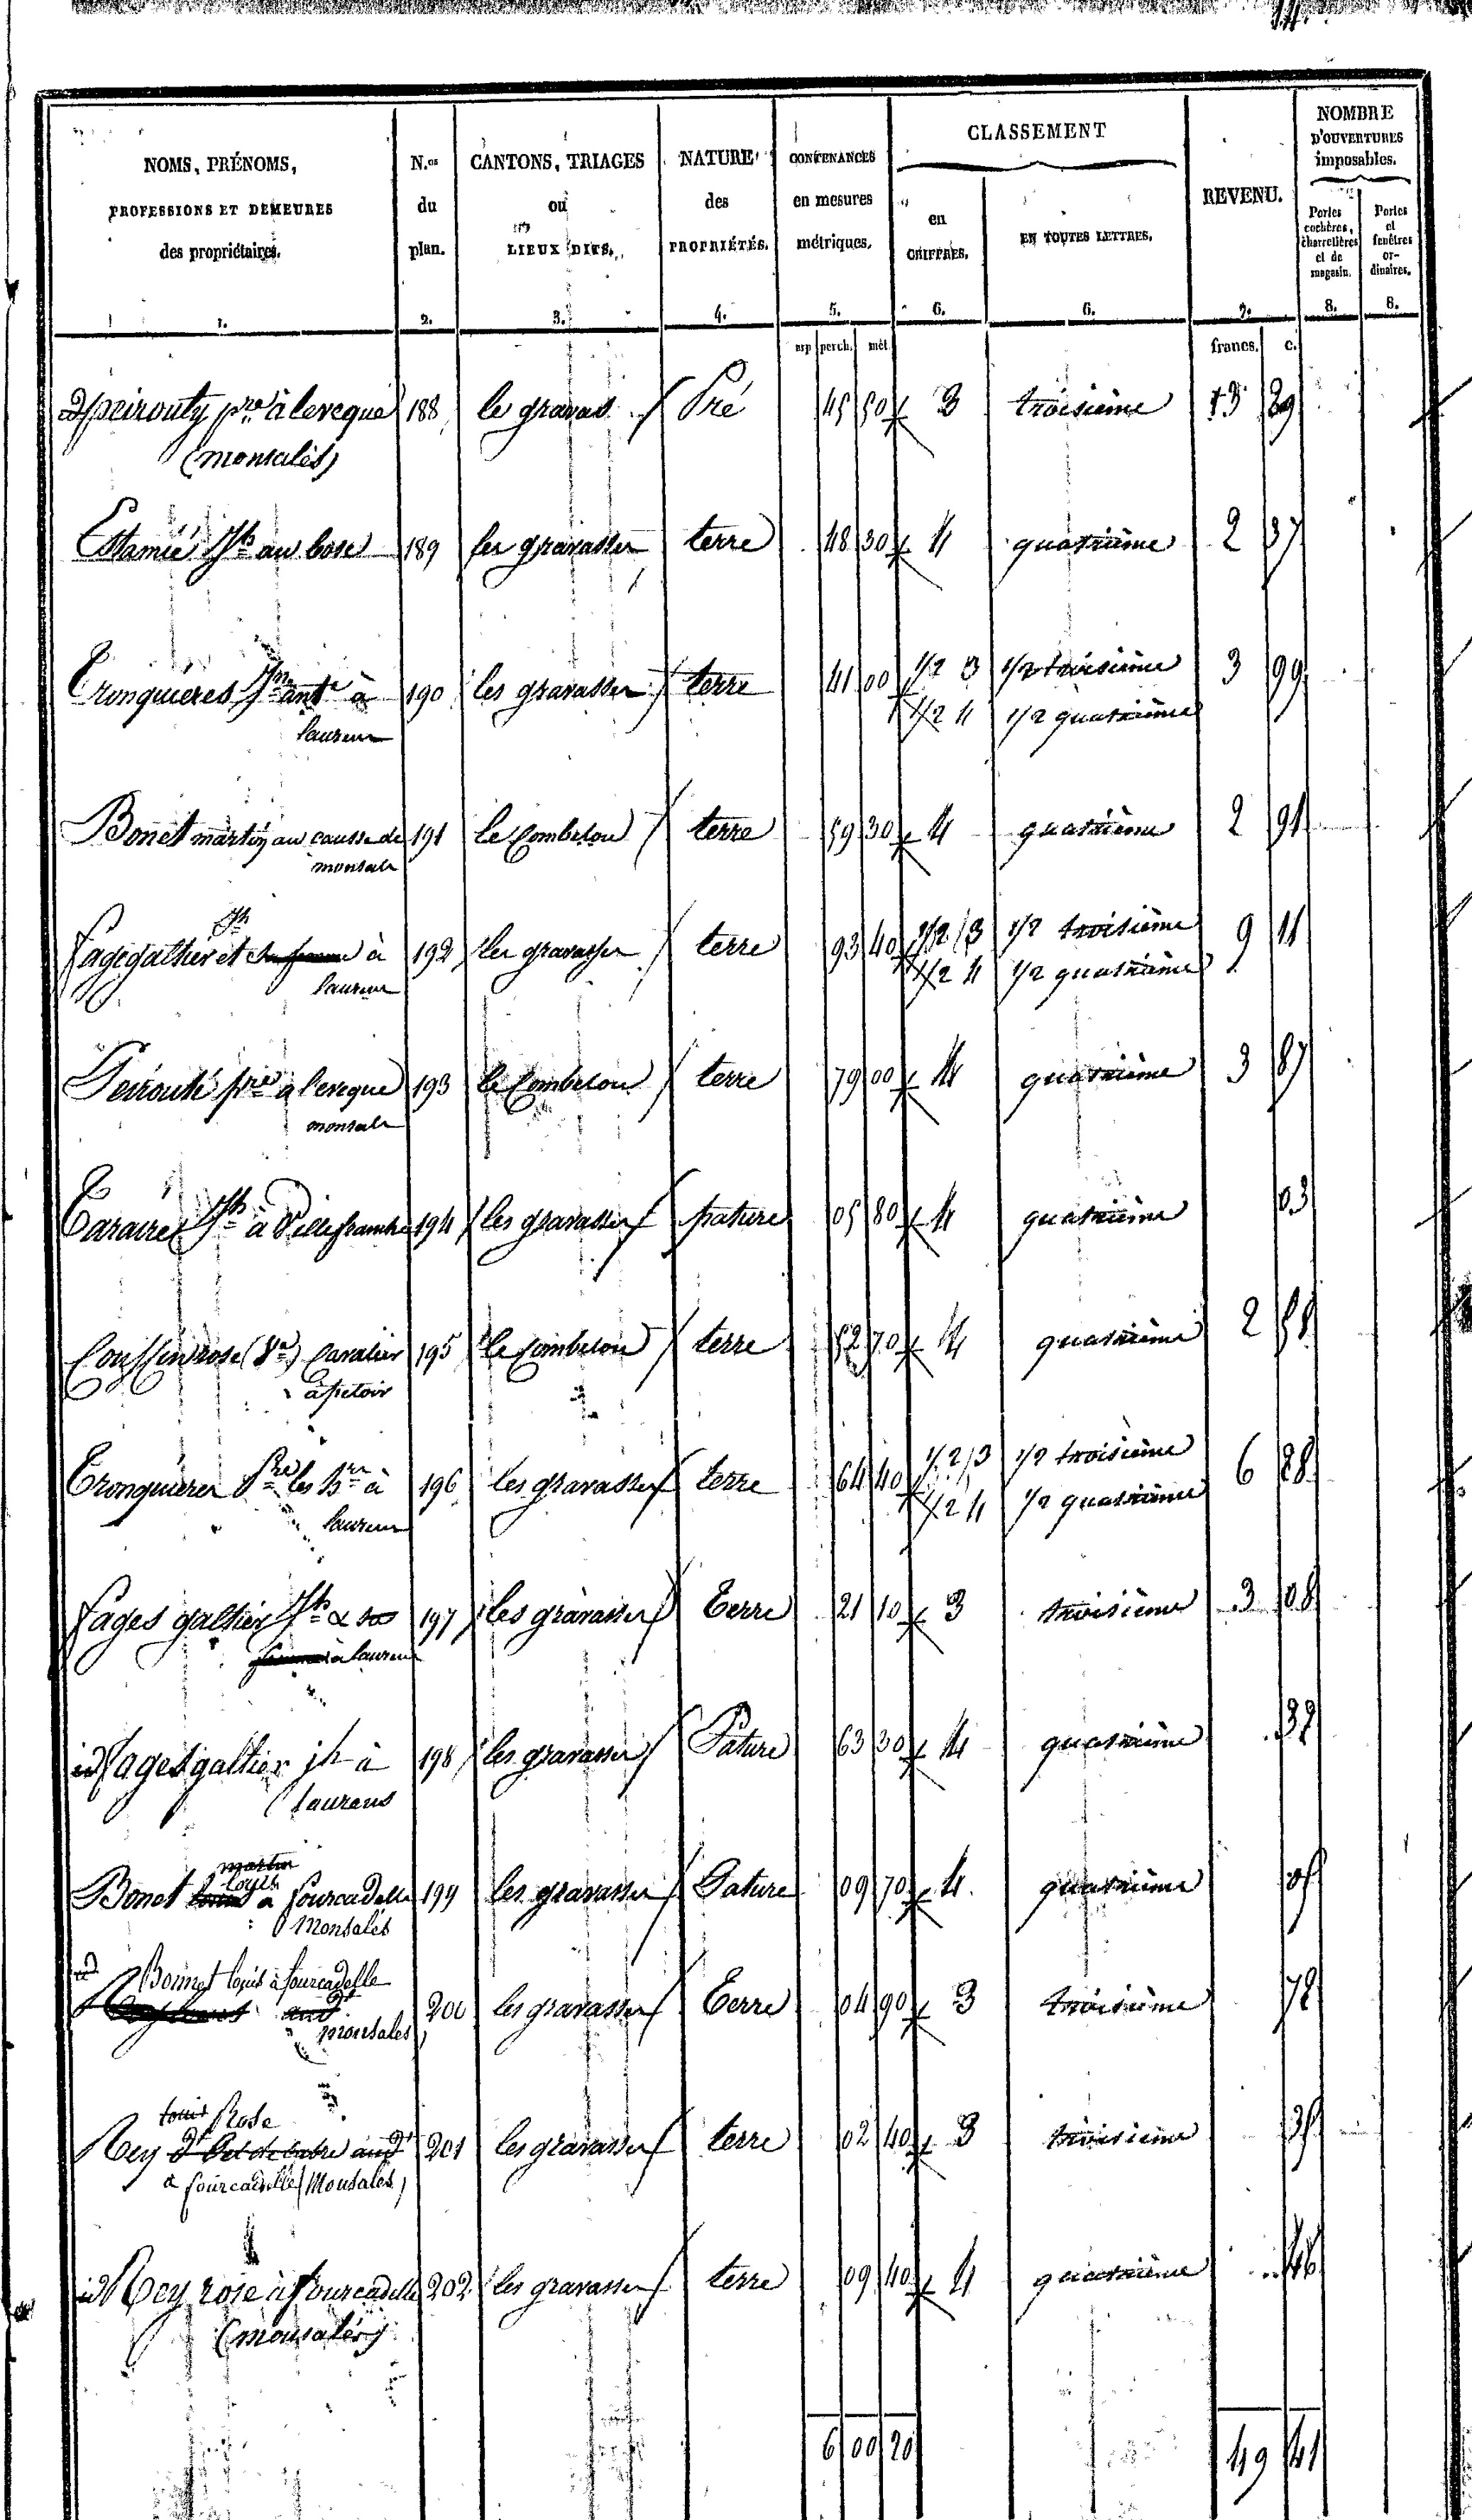 14.
NOMS, PRÉNOMS, PROFESSIONS ET DEMEURES des propriétaires. 1.
N.os du plan. 2.
CANTONS, TRIAGES ou LIEUX DITS. 3.
NATURE des PROPRIÉTÉS. 4.
CONTENANCES en mesures métriques. 5.
CLASSEMENT
en CHIFFRES. 6.
EN TOUTES LETTRES. 6.
REVENU. 7.
NOMBRE D'OUVERTURES imposables.
Portes cochères, charretières et de magasin. 8.
Portes et fenêtres ordinaires. 8.
arp perch. mèt. francs. c.
peirouty pre à leveque 188 le gravas Pré 45 50 3 troisième 13 89
(monsalès)
Estamié Jh au bosc 189 les gravasses terre 48 30 4 quatrième 2 37
Tronquieres Jn ant à 190 les gravasses terre 41 00 1/2 3 1/2 troisième 3 99
laurens 1/2 4 1/2 quatrième
Bonet martin au causse de 191 le Combelou terre 59 30 4 quatrième 2 91
monsals
Jh
fages galtier et à 192 les gravasses terre 93 40 1/2 3 1/2 troisième 9 11
laurens 1/2 4 1/2 quatrième
Peirouti pre a leveque 193 le Combelou terre 79 00 4 quatrième 3 87
monsals
Jh à Villefranche 194 les gravasses pature 05 80 4 quatrième 03
rose (Ve) Cavalier 195 le Combelou terre 52 70 4 quatrième 2 58
Tronquieres Pre les hrs à 196 les gravasses terre 64 40 1/2 3 1/2 troisième 6 28
laurens 1/2 4 1/2 quatrième
fages galtier Jh & sa 197 les gravasses Terre 21 10 3 troisième 3 08
femme à laurens
id fages galtier jh à 198 les gravasses Pature 63 30 4 quatrième 32
laurens
martin
louis
Bonet à fourcadelle 199 les gravasses Pature 09 70 4 quatrième 05
Monsalès
id Bonnet louis à fourcadelle
200 les gravasses Terre 04 90 3 troisième 72
monsales
louis Rose
Rey 201 les gravasses terre 02 40 3 troisième 35
a fourcadelle (Monsalès)
id Rey rose à fourcadelle 202 les gravasses terre 09 40 4 quatrième 46
(monsalès)
6 00 20 49 41